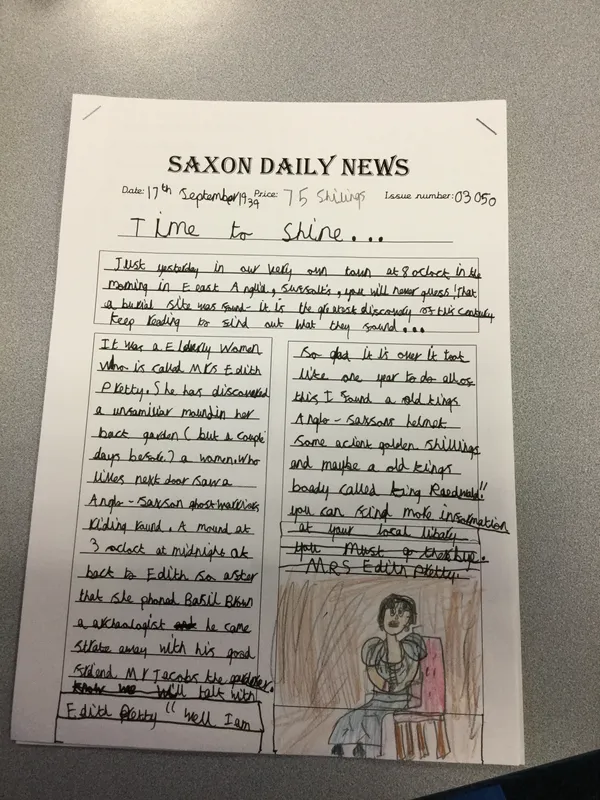 SAXON DAILY NEWS
Date: 17th September 1939 Price: 75 Shillings Issue number: 03050
Time to shine...
Just yesterday in our very own town at 8 oclock in the
morning in E east Anglia, , you will never guess! That
a burial site was found- it is the greatest discovery of this century
keep reading to find out what they found...
It was a Elderly Women
who is called MRS Edith
Pretty. She has discovered
a unfamiliar mound in her
back garden (but a couple
days before.) a women. Who
lives next door saw a
Anglo-saxson ghost warriors
Riding round. A mound at
3 oclock at midnight at
back to Edith so after
that she phoned Basil Brown
a archaologist he came
strate away with his good
friend Mr Jacobs the gardner.
know we will talk with
Edith Pretty "Well I am
so glad it is over it took
like one year to do all of
this I found a old kings
Anglo-saxsons helmet
some acient golden shillings
and maybe a old kings
boady called king Raedwald."
you can find more information
at your local libary
You Must go
MRS Edith Pretty.